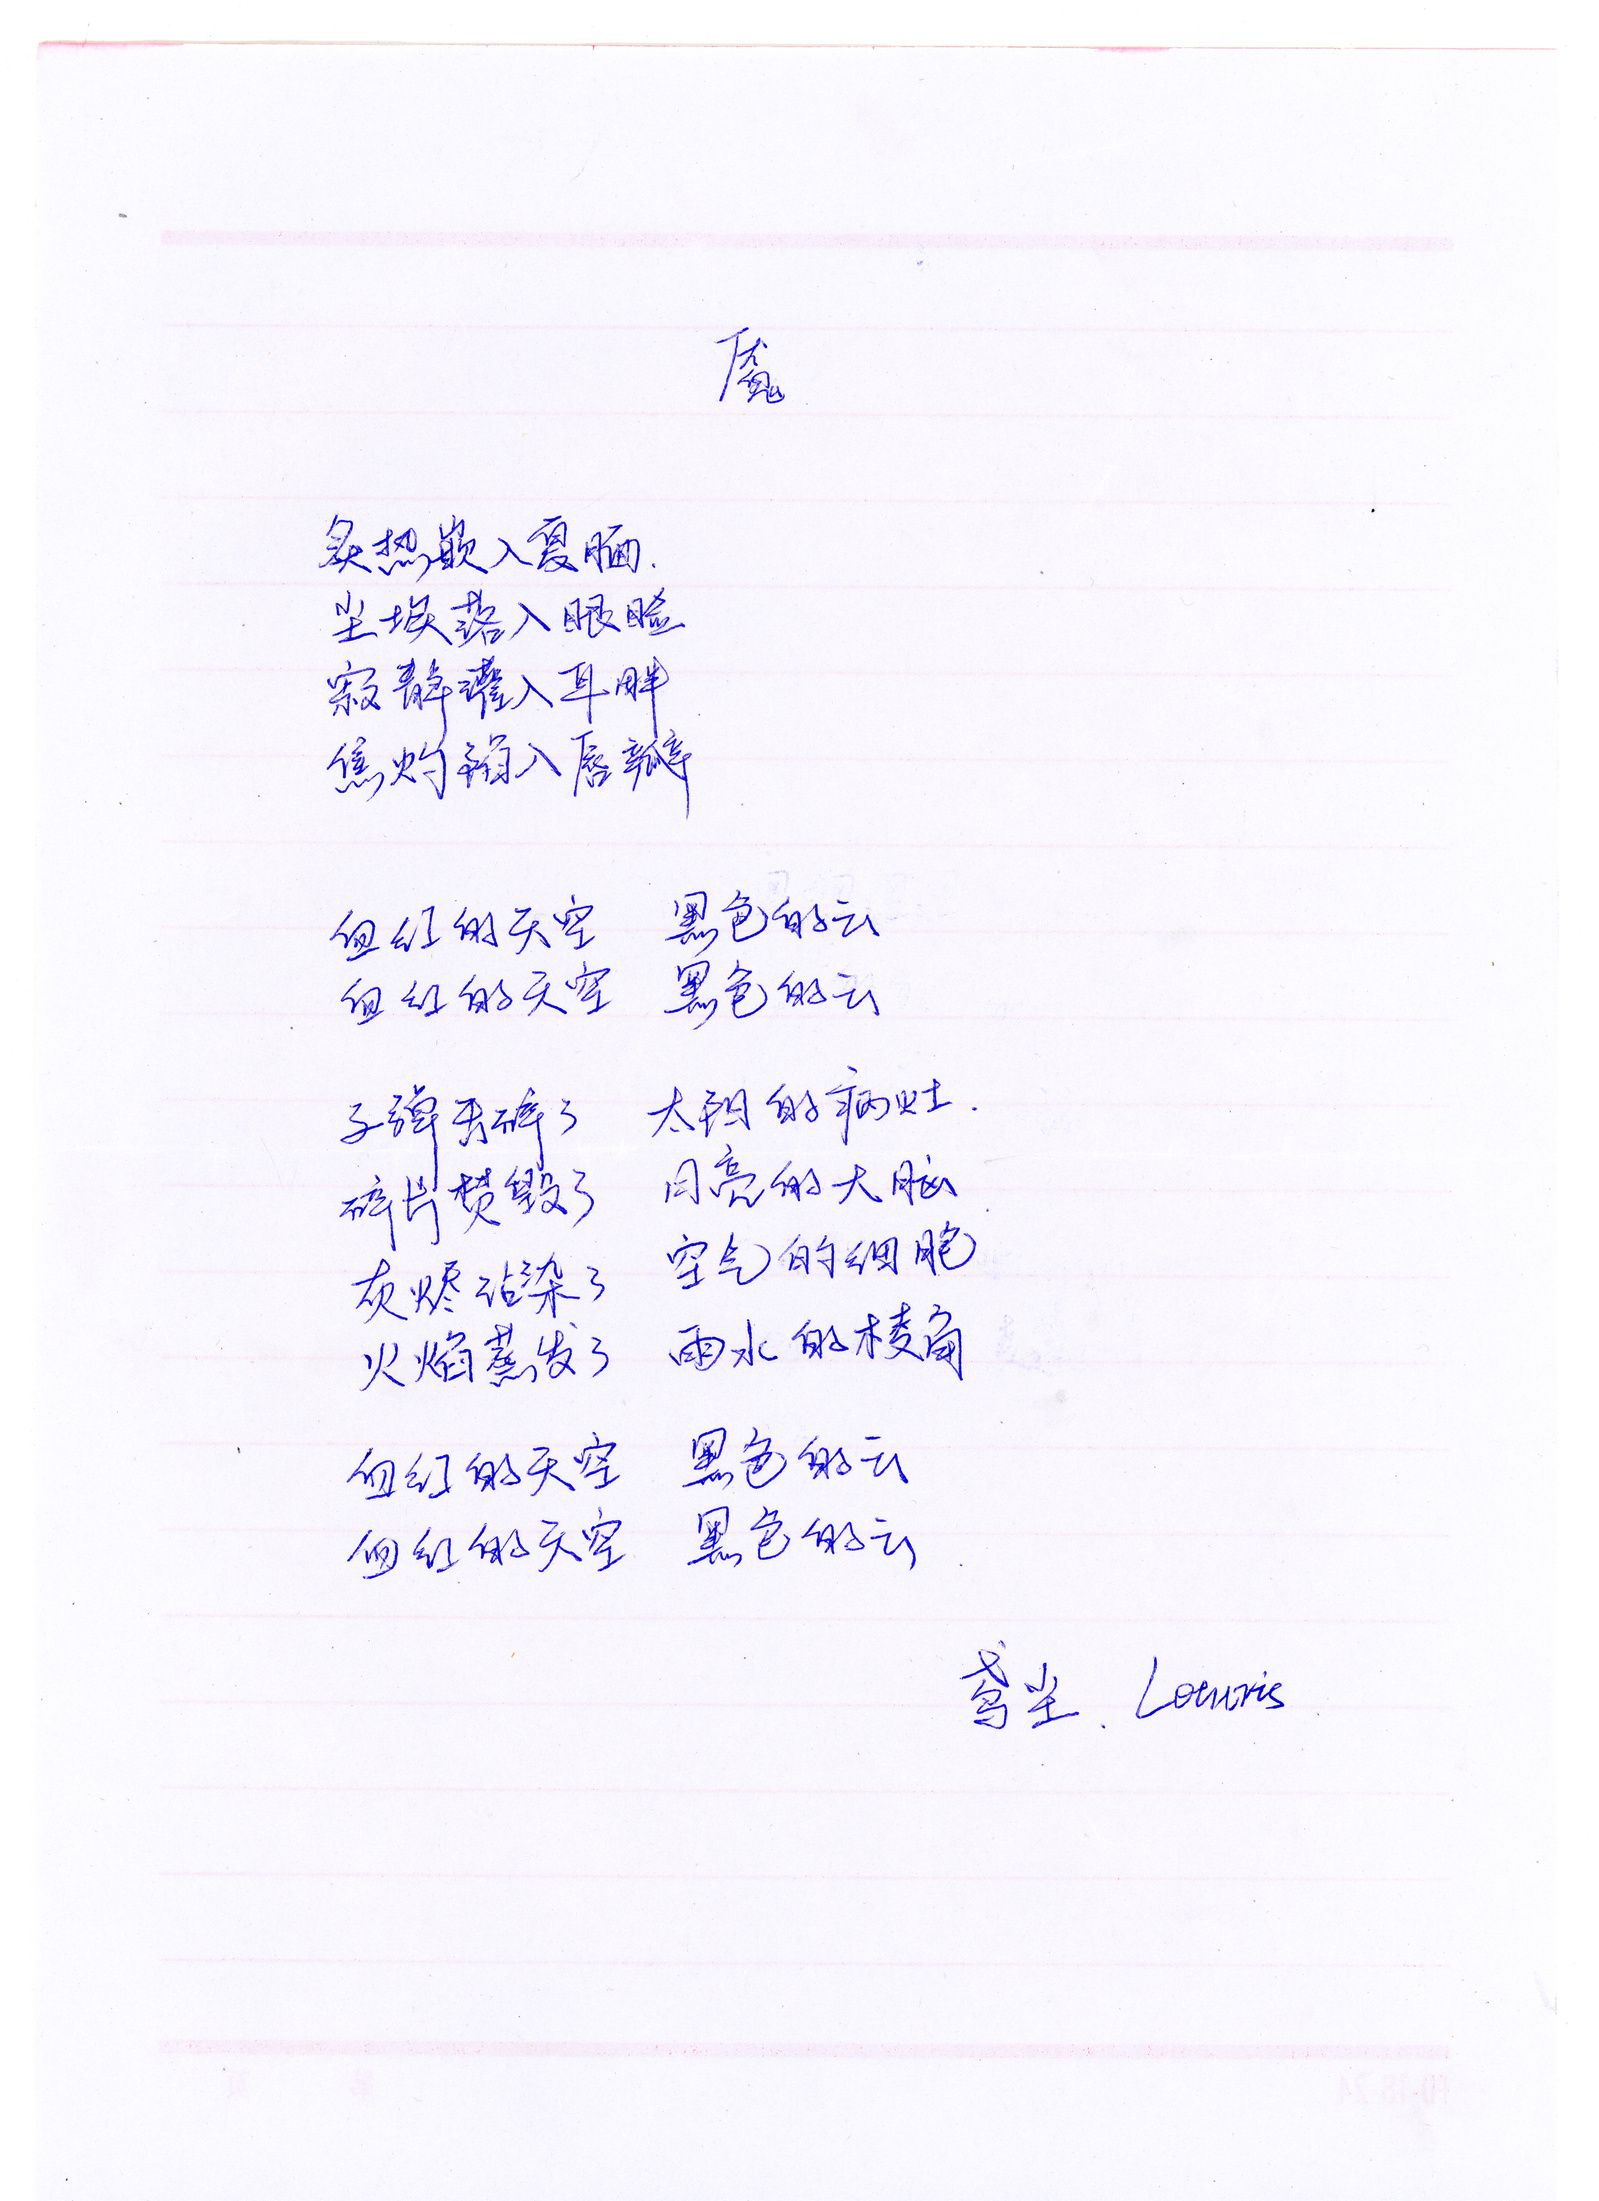 魇
炙热嵌入夏脑.
尘埃落入眼睑
寂静灌入耳畔
焦灼陷入唇瓣
血红的天空 黑色的云
血红的天空 黑色的云
子弹击碎了 太阳的病灶.
碎片焚毁了 月亮的大脑
灰烬沾染了 空气的细胞
火焰蒸发了 雨水的棱角
血红的天空 黑色的云
血红的天空 黑色的云
鸢尘.